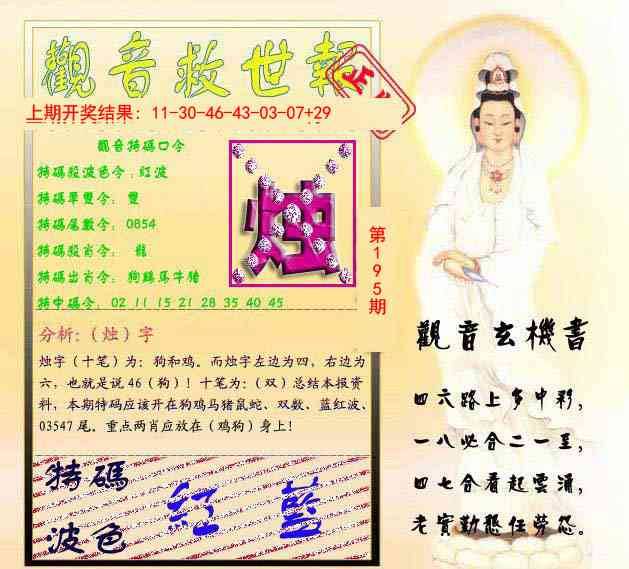 觀音救世報
上期开奖结果：11-30-46-43-03-07+29
觀音特碼口令
特碼殺波色令：紅波
特碼單雙令：雙
特碼尾數令：0854
特碼殺肖令：龍
特碼出肖令：狗雞馬牛豬
特中碼令：02 11 15 21 28 35 40 45
烛
第195期
分析:（烛）字
烛字（十笔）为：狗和鸡。而烛字左边为四，右边为
六，也就是说46（狗）！十笔为:（双）总结本报资
料，本期特码应该开在狗鸡马猪鼠蛇、双数、蓝红波、
03547尾。重点两肖应放在（鸡狗）身上！
特碼
波色
紅 藍
觀音玄機書
四六路上多中彩，
一八必合二一至，
四七合看起雲涌，
老實勤懇任勞怨。